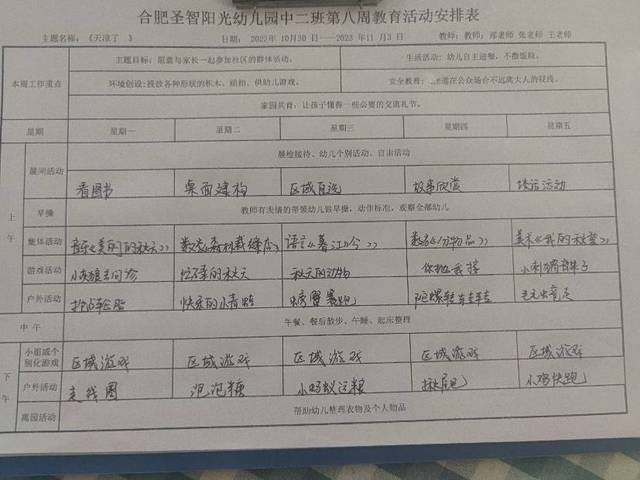 合肥圣智阳光幼儿园中二班第八周教育活动安排表
主题名称:《天凉了》 日期:2022年10月30日—2023年11月3日 教师:郑老师 张老师 王老师
本周工作重点 主题目标:愿意与家长一起参加社区的群体活动。 生活活动:幼儿自主进餐,不撒饭粒。
环境创设:投放各种形状的积木、 供幼儿游戏。 安全教育: 在公众场合不远离大人的视线。
家园共育:让孩子懂得一些必要的交流礼节。
星期 星期一 星期二 星期三 星期四 星期五
上午 晨间活动 晨检接待、幼儿个别活动、自由活动
看图书 桌面建构 区域自选 故事欣赏 活动
早操 教师有表情的带领幼儿做早操,动作标准,观察全部幼儿
集体活动 音乐《美丽的秋天》 数学《森林裁缝店》 语言 数学《分物品》 美术《我的秋 》
游戏活动 忙碌的秋天 秋天的动物 你 我接 小刺猬背果子
户外活动 快乐的小青蛙 螃蟹赛跑 陀螺转转转
中午 午餐、餐后散步、午睡、起床整理
下午 小组或个别化游戏 区域游戏 区域游戏 区域游戏 区域游戏 区域游戏
户外活动 走线圈 泡泡糖 小蚂蚁运粮 揪尾巴 小鸡快跑
离园活动 帮助幼儿整理衣物及个人物品